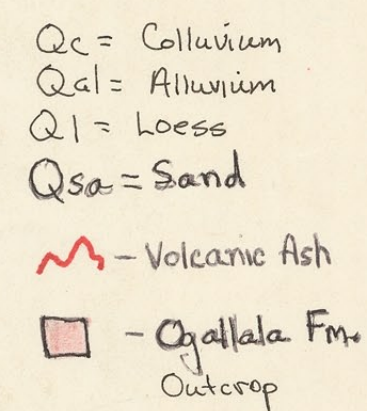 Qc = Colluvium
Qal = Alluvium
Ql = Loess
Qsa = Sand
- Volcanic Ash
- Ogallala Fm.
Outcrop